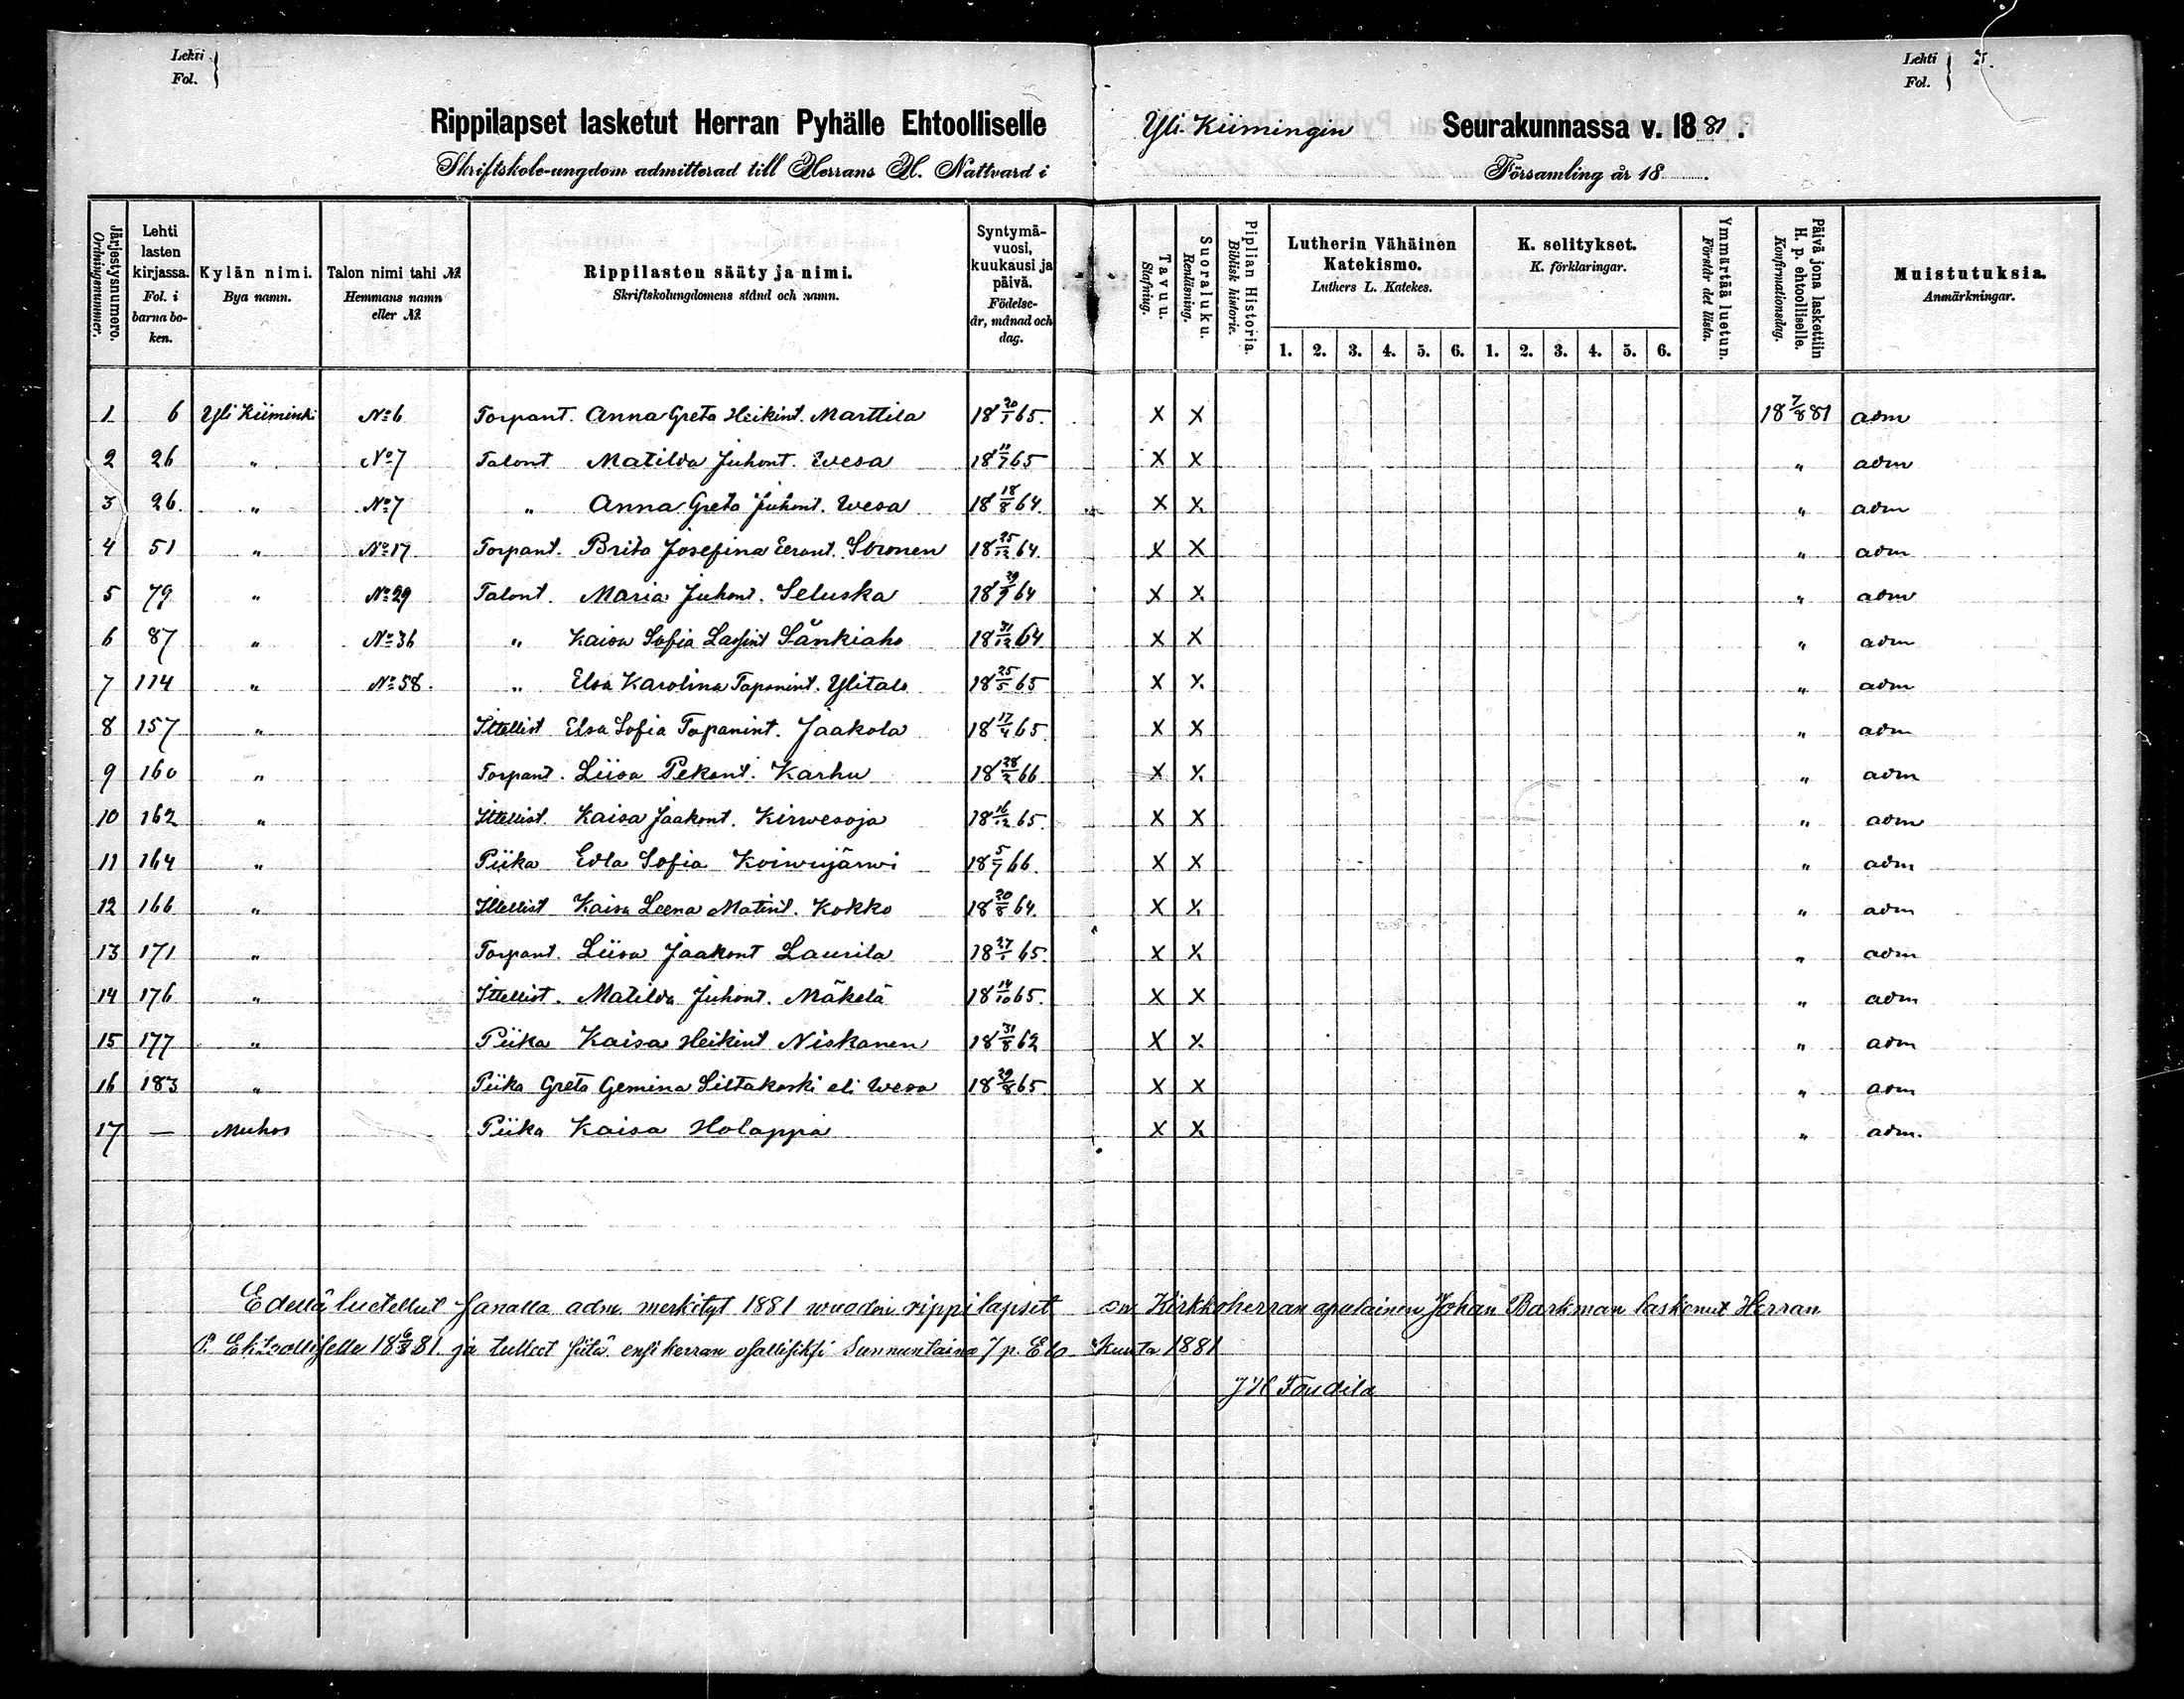 Lehti
Fol.
Lehti
Fol.
Rippilapset lasketut Herran Pyhälle Ehtoolliselle Yli Kiimingin Seurakunnassa v. 1881.
Skriftskole-ungdom admitterad till Herrans H. Nattvard i Församling år 18
Järjestysnumero. Ordningsnummer.
Lehti lasten kirjassa. Fol. i barna boken.
Kylän nimi. Bya namn.
Talon nimi tahi № Hemmans namn eller №
Rippilasten sääty ja nimi. Skriftskolungdomens stånd och namn.
Syntymävuosi, kuukausi ja päivä. Födelseår, månad och dag.
Tavuu. Stafning.
Suoraluku. Renläsning.
Piplian Historia. Biblisk historie.
Lutherin Vähäinen Katekismo. Luthers L. Katekes.
1. 2. 3. 4. 5. 6.
K. selitykset. K. förklaringar.
1. 2. 3. 4. 5. 6.
Ymmärtää luetun. Förstår det lästa.
Päivä jona laskettiin H. p. ehtoolliselle. Konfirmationsdag.
Muistutuksia. Anmärkningar.
1 6 Yli Kiiminki № 6 Torpant. Anna Greta Heikint. Marttila 18 20/1 65. X X 18 7/8 81 adm
2 26 " № 7 Talont Matilda Juhont. Wesa 18 /7 65 X X " adm
3 26. " № 7 " Anna Greta Juhont. Wesa 18 18/8 64. X X " adm
4 51 " № 17 Torpant. Brita Josefina Eeront. Soronen 18 25/12 64. X X " adm
5 79 " № 29 Talont. Maria Juhont. Seluska 18 29/9 64 X X " adm
6 87 " № 36 " Kaisa Sofia Lassint Sänkiaho 18 31/12 64. X X " adm
7 114 " № 58. " Elsa Karolina Tapanint. Ylitalo 18 25/5 65 X X " adm
8 157 " Ittellist Elsa Sofia Tapanint. Jaakola 18 17/4 65 X X " adm
9 160 " Torpant. Liisa Pekant. Karhu 18 28/2 66 X X " adm
10 162 " Ittellist. Kaisa Jaakont. Kirwesoja 18 16/12 65. X X " adm
11 164 " Piika Edla Sofia Koiwujärwi 18 5/7 66. X X " adm
12 166 " Ittellist Kaisa Leena Matint. Kokko 18 20/8 64. X X " adm
13 171 " Torpant. Liisa Jaakont Laurila 18 27/1 65. X X " adm
14 176 " Ittellist. Matilda Juhont. Mäkelä 18 14/10 65. X X " adm
15 177 " Piika Kaisa Heikint Niskanen 18 31/8 62 X X " adm
16 183 " Piika Greta Gemina Siltakoski eli Wesa 18 29/8 65 X X " adm
17 — Muhos Piika Kaisa Holappa X X " adm.
Edellä luetellut sanalla adm. merkityt 1881 wuoden rippilapset on Kirkkoherran apulainen Johan Barkman laskenut Herran
P. Ehtoolliselle 18 6/8 81. ja tulleet siitä ensi kerran osallisiksi Sunnuntaina 7 p. Elo Kuuta 1881